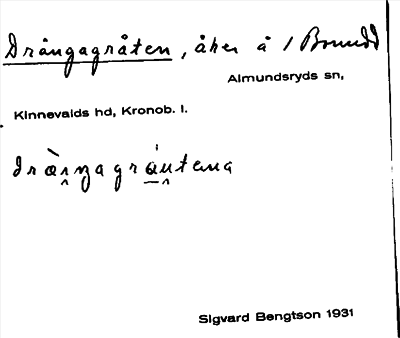 Drångagråten, åker å 1 Brunudd
Almundsryds sn,
Kinnevalds hd, Kronob. l.
Sigvard Bengtson 1931